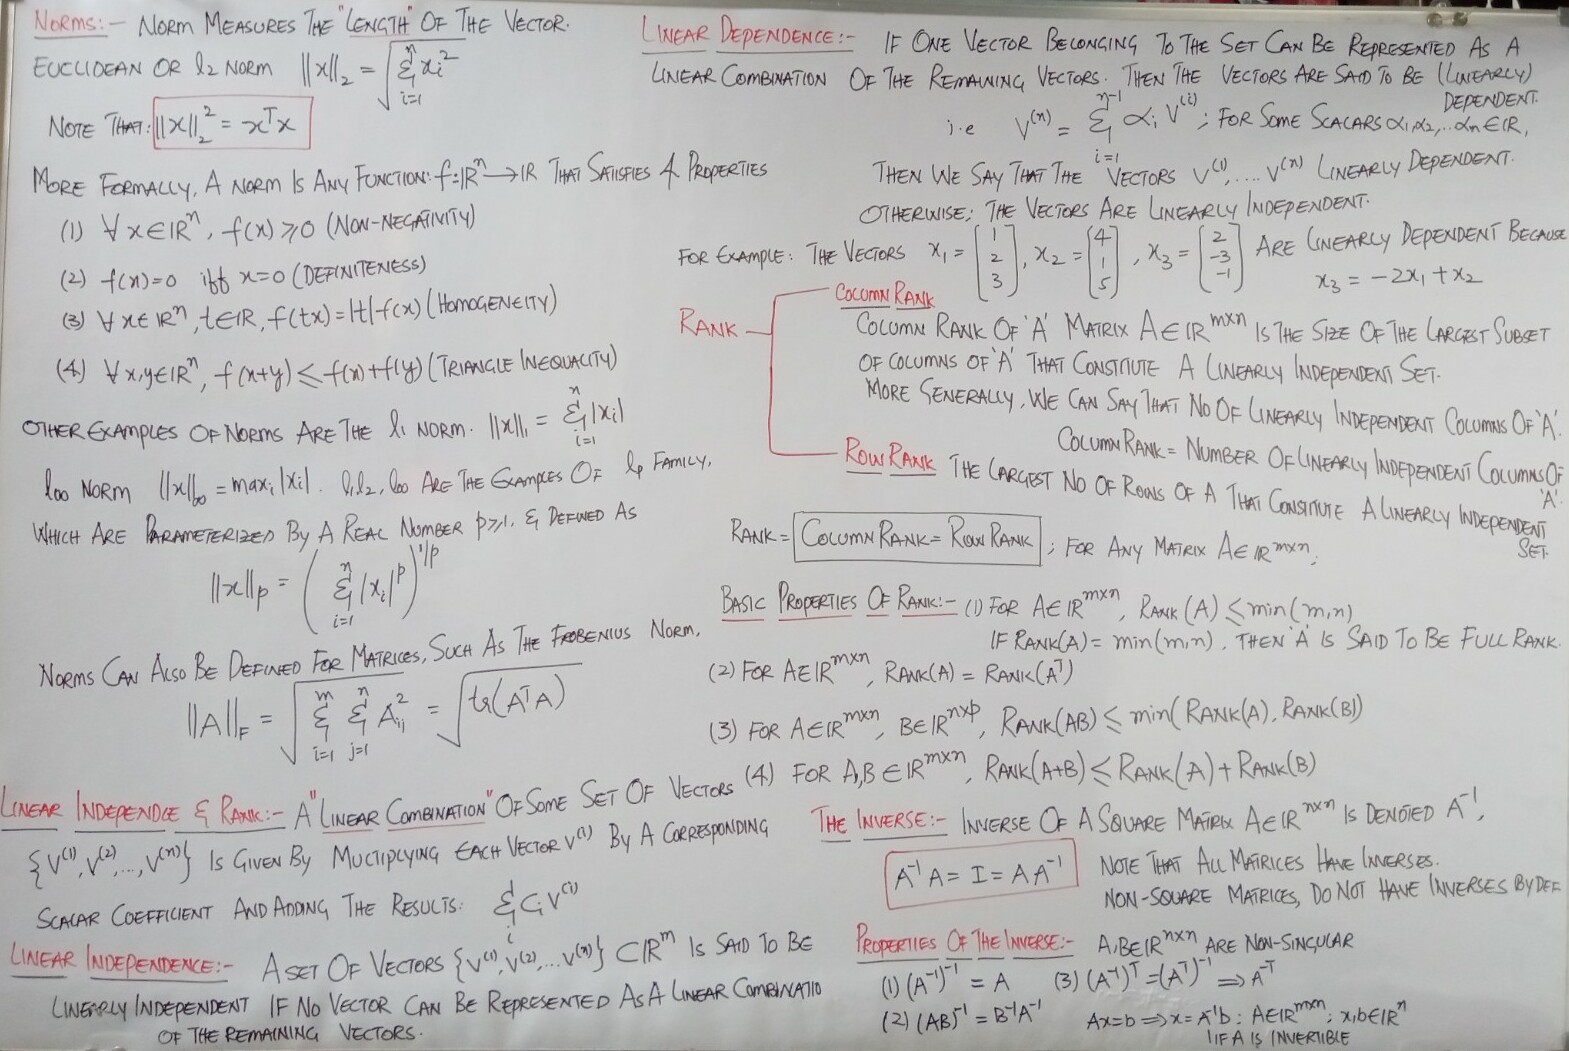 NORMS:- NORM MEASURES THE "LENGTH" OF THE VECTOR.
EUCLIDEAN OR l₂ NORM ||x||₂ = √(Σ_{i=1}^{n} xᵢ²)
NOTE THAT: ||x||₂² = xᵀx
MORE FORMALLY, A NORM IS ANY FUNCTION: f: ℝⁿ → ℝ THAT SATISFIES 4 PROPERTIES
(1) ∀ x ∈ ℝⁿ, f(x) ⩾ 0 (NON-NEGATIVITY)
(2) f(x)=0 iff x=0 (DEFINITENESS)
(3) ∀ x ∈ ℝⁿ, t ∈ ℝ, f(tx) = |t| f(x) (HOMOGENEITY)
(4) ∀ x,y ∈ ℝⁿ, f(x+y) ⩽ f(x)+f(y) (TRIANGLE INEQUALITY)
OTHER EXAMPLES OF NORMS ARE THE l₁ NORM. ||x||₁ = Σ_{i=1}^{n} |xᵢ|
l∞ NORM ||x||∞ = maxᵢ |xᵢ|. l₁, l₂, l∞ ARE THE EXAMPLES OF lp FAMILY,
WHICH ARE PARAMETERIZED BY A REAL NUMBER p⩾1, & DEFINED AS
||x||p = (Σ_{i=1}^{n} |xᵢ|^p)^{1/p}
NORMS CAN ALSO BE DEFINED FOR MATRICES, SUCH AS THE FROBENIUS NORM.
||A||_F = √(Σ_{i=1}^{m} Σ_{j=1}^{n} A²ᵢⱼ) = √(tr(AᵀA))
LINEAR INDEPENDCE & RANK:- A "LINEAR COMBINATION" OF SOME SET OF VECTORS
{V⁽¹⁾, V⁽²⁾, ..., V⁽ⁿ⁾} IS GIVEN BY MULTIPLYING EACH VECTOR V⁽ⁱ⁾ BY A CORRESPONDING
SCALAR COEFFICIENT AND ADDING THE RESULTS: Σᵢ Cᵢ V⁽ⁱ⁾
LINEAR INDEPENDENCE:- A SET OF VECTORS {V⁽¹⁾, V⁽²⁾, ... V⁽ⁿ⁾} ⊂ ℝᵐ IS SAID TO BE
LINEARLY INDEPENDENT IF NO VECTOR CAN BE REPRESENTED AS A LINEAR COMBINATIO
OF THE REMAINING VECTORS.
LINEAR DEPENDENCE:- IF ONE VECTOR BELONGING TO THE SET CAN BE REPRESENTED AS A
LINEAR COMBINATION OF THE REMAINING VECTORS. THEN THE VECTORS ARE SAID TO BE (LINEARLY)
DEPENDENT.
i.e V⁽ⁿ⁾ = Σ_{i=1}^{n-1} αᵢ V⁽ⁱ⁾ ; FOR SOME SCALARS α₁, α₂, .. αₙ ∈ ℝ,
THEN WE SAY THAT THE VECTORS V⁽¹⁾, .... V⁽ⁿ⁾ LINEARLY DEPENDENT.
OTHERWISE; THE VECTORS ARE LINEARLY INDEPENDENT.
FOR EXAMPLE: THE VECTORS x₁ = [1 2 3], x₂ = [4 1 5], x₃ = [2 -3 -1] ARE LINEARLY DEPENDENT BECAUSE
x₃ = -2x₁ + x₂
RANK
COLUMN RANK
COLUMN RANK OF 'A' MATRIX A ∈ ℝ^{m×n} IS THE SIZE OF THE LARGEST SUBSET
OF COLUMNS OF 'A' THAT CONSTITUTE A LINEARLY INDEPENDENT SET.
MORE GENERALLY, WE CAN SAY THAT NO OF LINEARLY INDEPENDENT COLUMNS OF 'A'.
COLUMN RANK = NUMBER OF LINEARLY INDEPENDENT COLUMNS OF
'A'.
ROW RANK THE LARGEST NO OF ROWS OF A THAT CONSTITUTE A LINEARLY INDEPENDENT
SET.
RANK = COLUMN RANK = ROW RANK ; FOR ANY MATRIX A ∈ ℝ^{m×n};
BASIC PROPERTIES OF RANK:- (1) FOR A ∈ ℝ^{m×n}, RANK(A) ⩽ min(m,n)
IF RANK(A) = min(m,n), THEN 'A' IS SAID TO BE FULL RANK.
(2) FOR A ∈ ℝ^{m×n}, RANK(A) = RANK(Aᵀ)
(3) FOR A ∈ ℝ^{m×n}, B ∈ ℝ^{n×p}, RANK(AB) ⩽ min(RANK(A), RANK(B))
(4) FOR A,B ∈ ℝ^{m×n}, RANK(A+B) ⩽ RANK(A) + RANK(B)
THE INVERSE:- INVERSE OF A SQUARE MATRIX A ∈ ℝ^{n×n} IS DENOTED A⁻¹,
A⁻¹A = I = AA⁻¹
NOTE THAT ALL MATRICES HAVE INVERSES.
NON-SQUARE MATRICES, DO NOT HAVE INVERSES BY DEF
PROPERTIES OF THE INVERSE:- A,B ∈ ℝ^{n×n} ARE NON-SINGULAR
(1) (A⁻¹)⁻¹ = A (3) (A⁻¹)ᵀ = (Aᵀ)⁻¹ ⟹ A⁻ᵀ
(2) (AB)⁻¹ = B⁻¹A⁻¹ Ax=b ⟹ x = A⁻¹b : A ∈ ℝ^{m×n}; x,b ∈ ℝⁿ
IF A IS INVERTIBLE